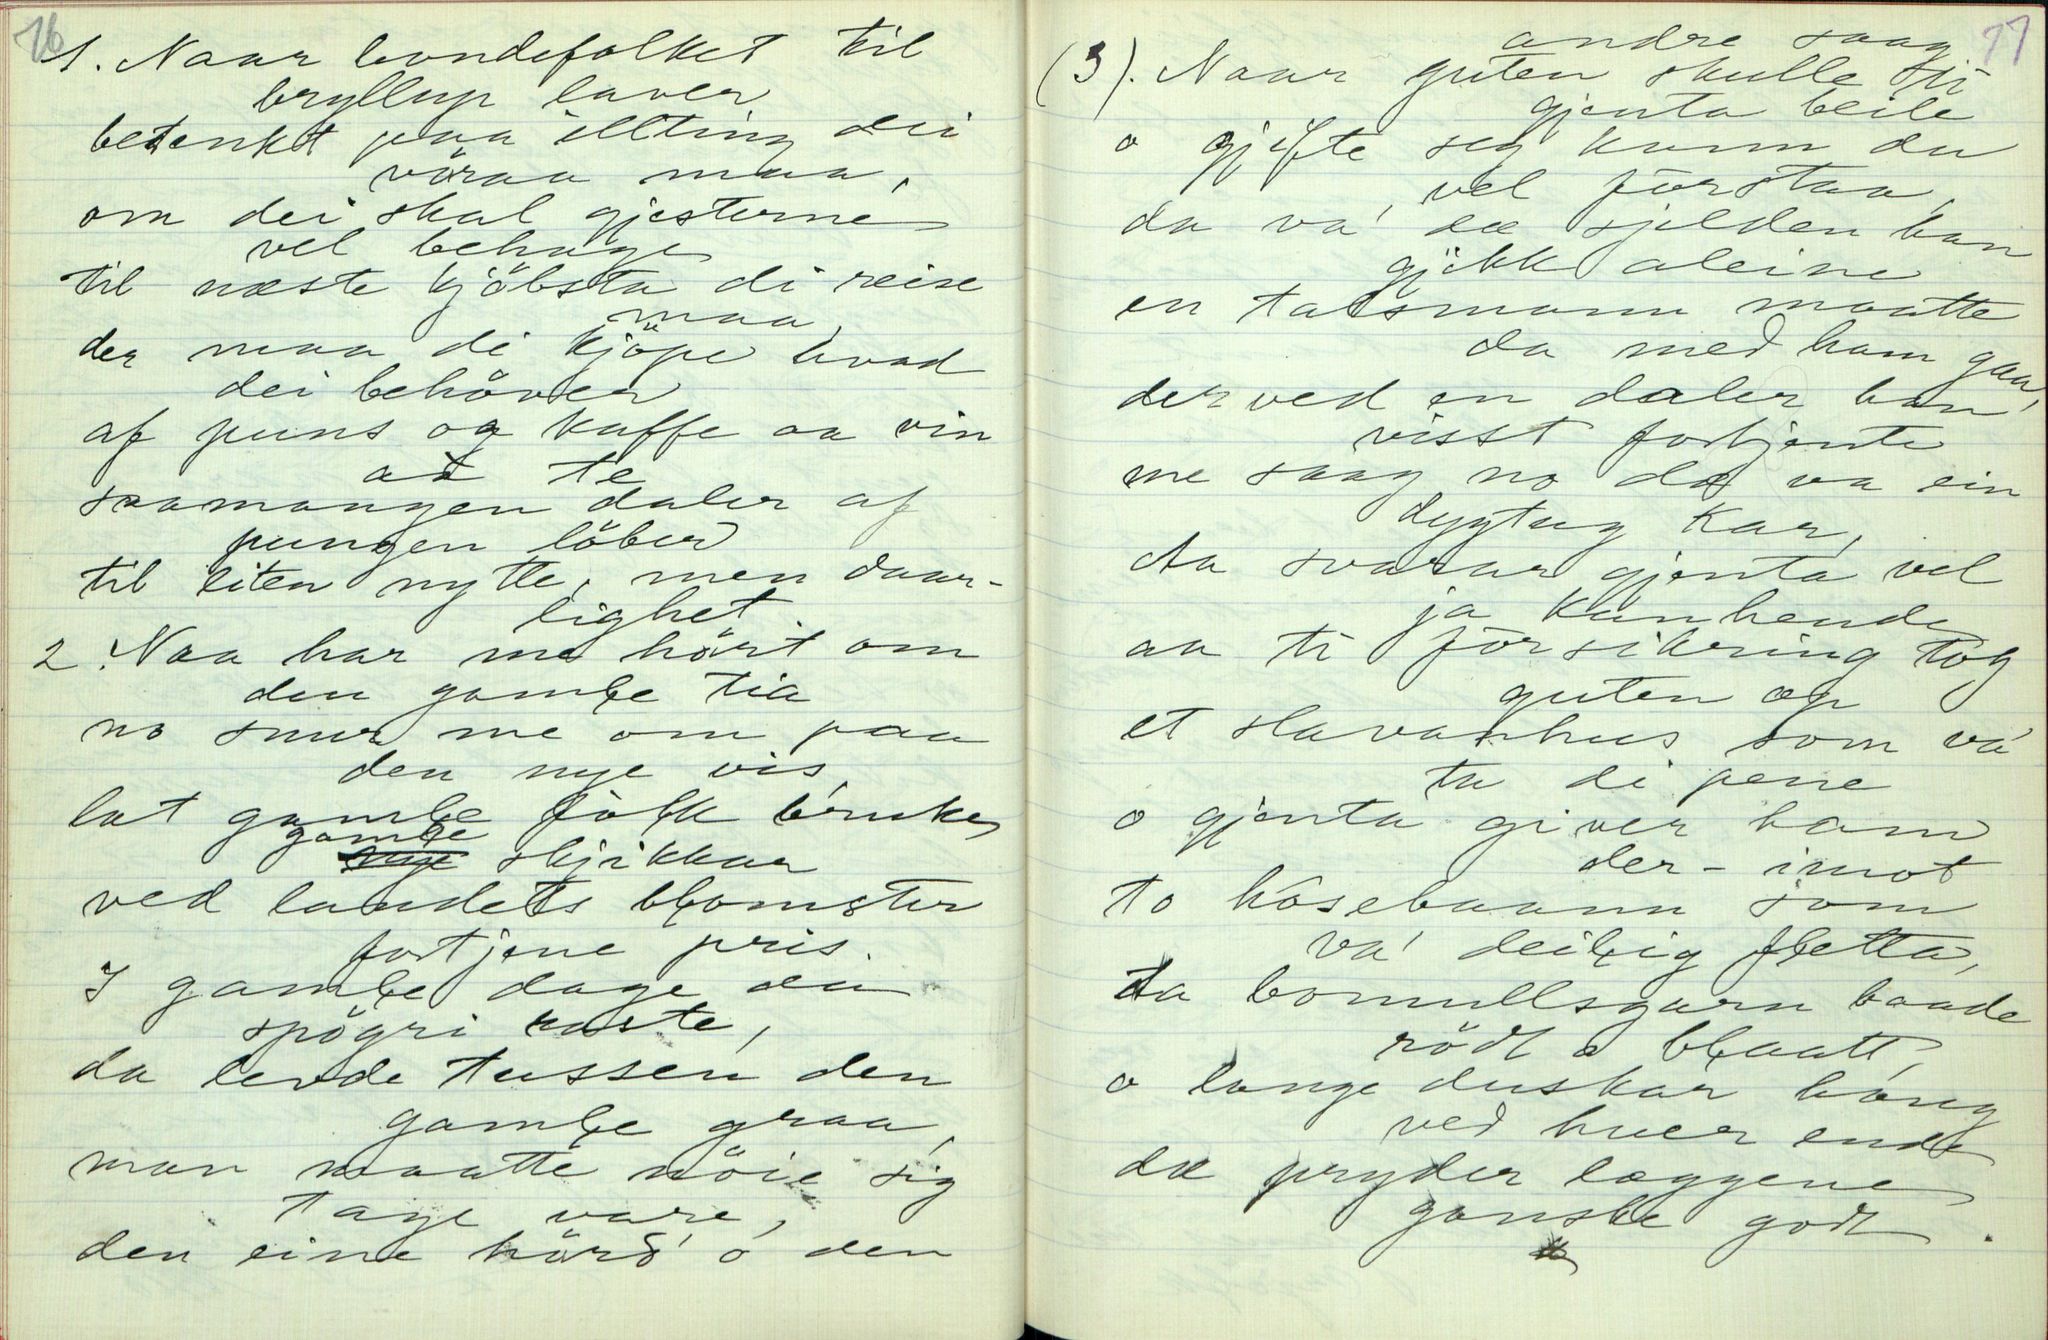 16
1. Naar bondefolket til
bryllup laver
betenkt paa illting dei
väraa maa,
om dei skal gjesterne
vel behage
til næste kjöbsta di reise
maa,
der maa di kjöpe hvad
dei behöver
af puns og kaffe aa vin
aa te
saamangen daler af
pungen löber
til liten nytte, men daar-
lighet.
2. Naa har me hört om
den gamle tia
no snur me om paa
den nye vis,
lat gamle folk bruke
gamle
nye skjikkar
ved landets blomster
fortjene pris.
I gamle dage dei
spögri raste,
da levde tussen den
gamle graa,
man maatte nöie sig
tage vare,
den eine hörd' o den
77
andre saag
(3). Naar guten skulle sji
gjenta beile
o gjifte seg kann du
vel forstaa,
da va' dæ sjelden han
gjikk aleine
en talsmann maatte
da med ham gaa,
derved en daler han
visst fortjente
me saag no dæ va ein
dygtug kar,
da svarar gjenta vel
ja kanhende
aa ti forsikring tog
guten op
et slavanhus som va'
ta di pene
o gjenta giver ham
der-imot
to håsebaann som
va' deilig fletta,
ta bomullsgarn baade
rödt o blaatt,
o lange duskar häng
ved hver ende
dæ pryder læggene
ganske godt.